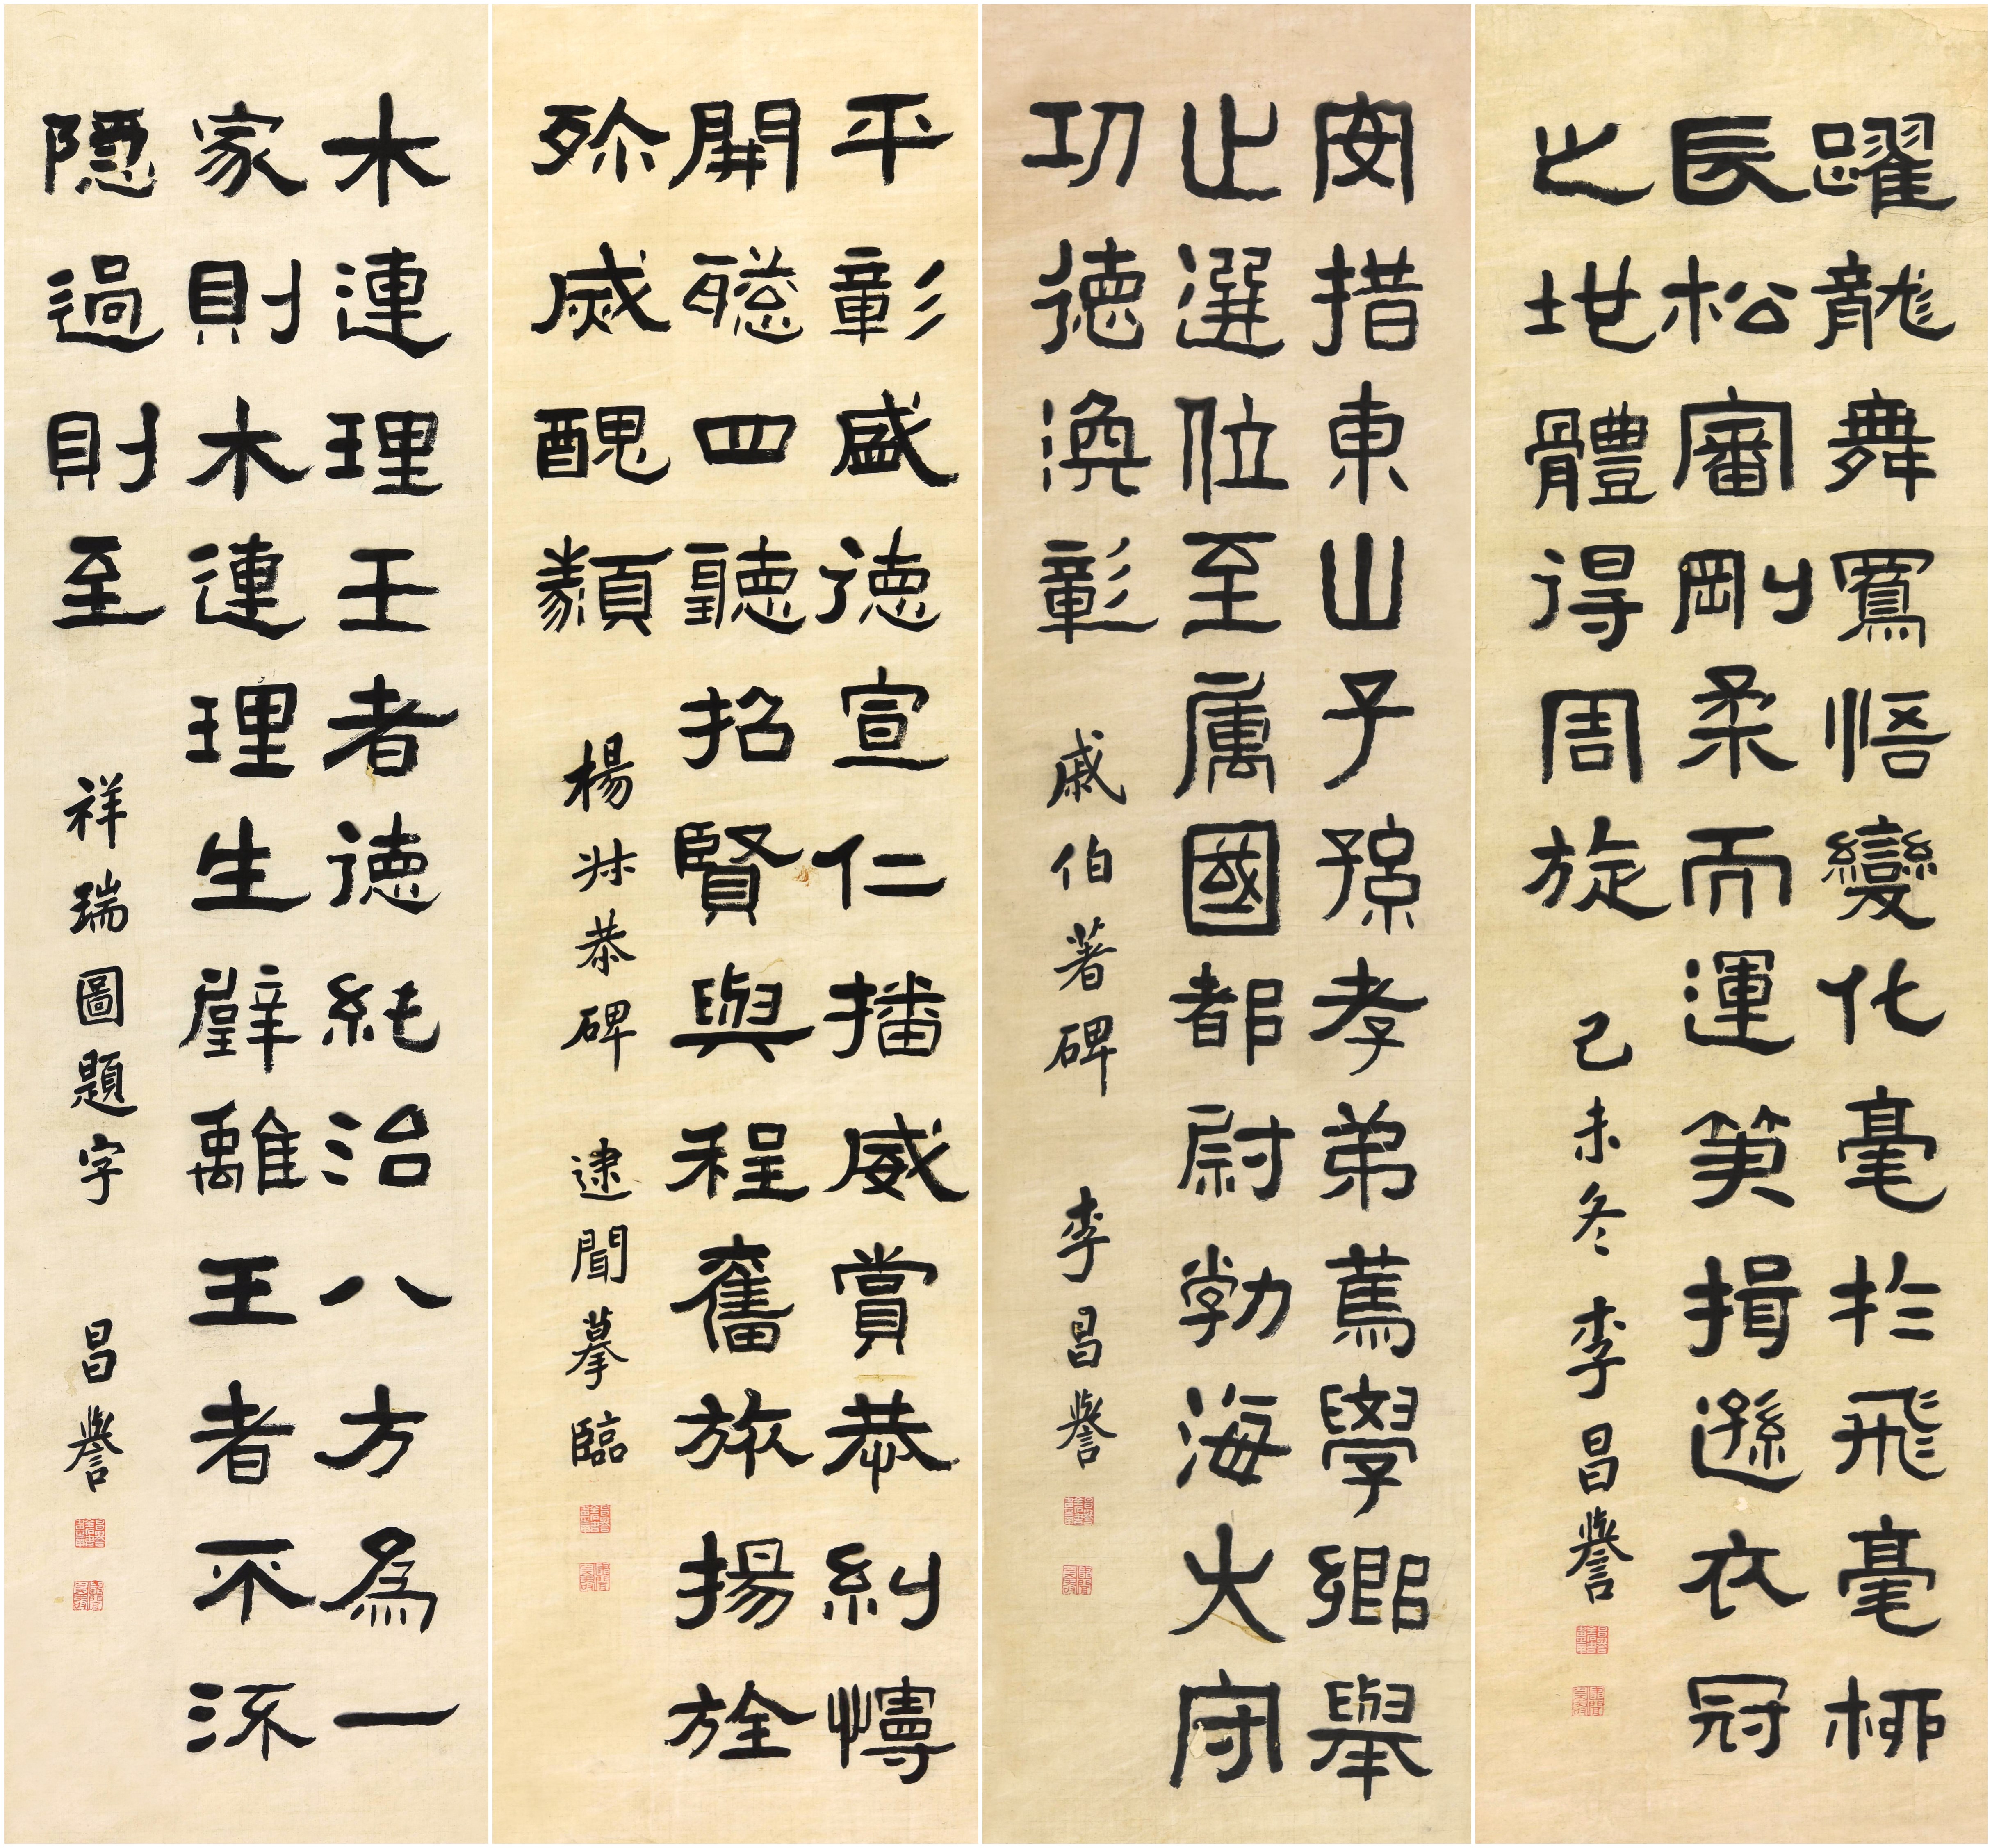 躍龍舞悟變化毫於飛毫柳
長松審剛柔而運筆揖遜衣冠
之地體得周旋
己未冬 李昌譽
安措東山子孫孝弟篤學鄉舉
止選位至属國都尉勃海大守
功德渙彰
戚伯著碑 李昌譽
平彰盛德宣仁播威賞恭糾懤
開聰四聽招賢與程奮旅揚旌
殄威醜類
楊叔恭碑 逮聞摹臨
木連理王者德純洽八方為一
家則木連理生璧離王者不流
隱過則至
祥瑞圖題字 昌譽